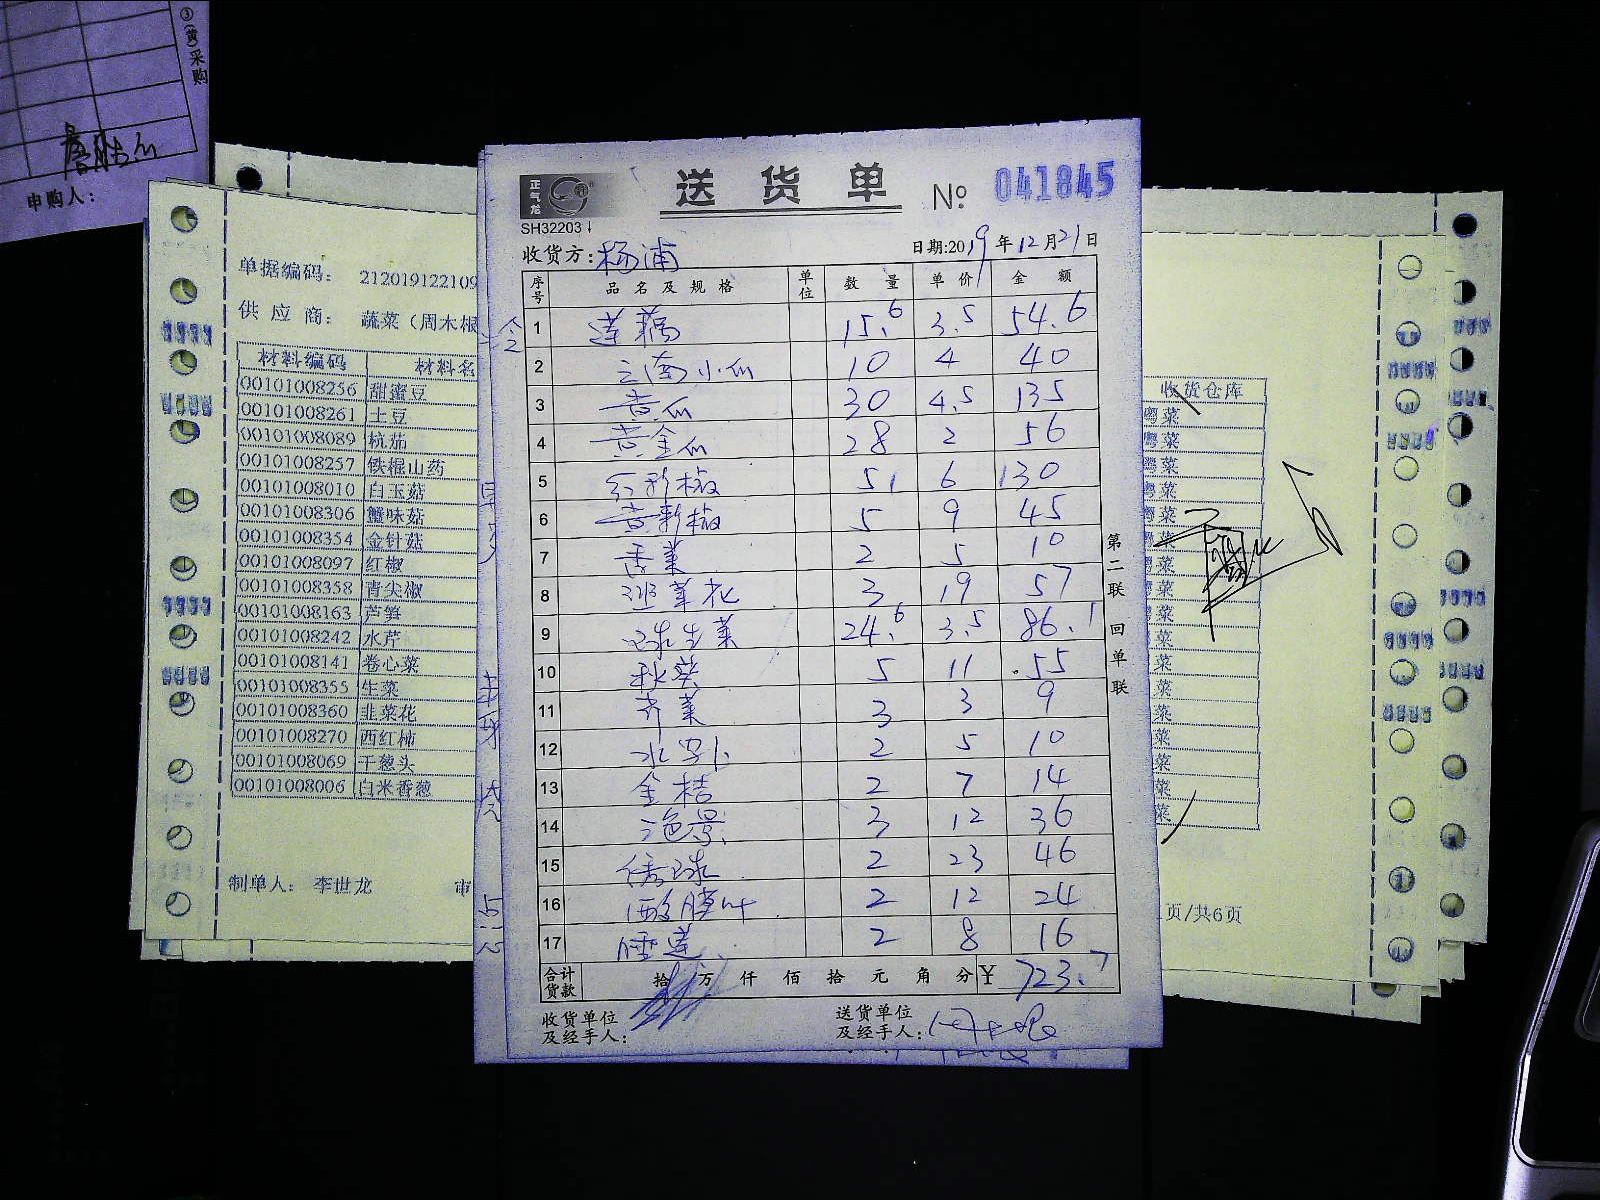 ③(黄)采购
申购人：
单据编码： 212019122109
供应商： 蔬菜（周木根
材料编码 材料名
00101008256 甜蜜豆
00101008261 土豆
00101008089 杭茄
00101008257 铁棍山药
00101008010 白玉菇
00101008306 蟹味菇
00101008354 金针菇
00101008097 红椒
00101008358 青尖椒
00101008163 芦笋
00101008242 水芹
00101008141 卷心菜
00101008355 生菜
00101008360 韭菜花
00101008270 西红柿
00101008069 干葱头
00101008006 白米香葱
制单人： 李世龙 审
正气龙
SH32203
送货单 No 041845
收货方：杨浦 日期:2019年12月21日
序号 品名及规格 单位 数量 单价 金额
1 莲藕 15.6 3.5 54.6
2 云南小瓜 10 4 40
3 黄瓜 30 4.5 135
4 黄金瓜 28 2 56
5 红彩椒 5 6 130
6 黄彩椒 5 9 45
7 香菜 2 5 10
8 韭菜花 3 19 57
9 球生菜 24.6 3.5 86.1
10 秋葵 5 11 55
11 芹菜 3 3 9
12 水萝卜 2 5 10
13 金桔 2 7 14
14 3 12 36
15 2 23 46
16 2 12 24
17 睡莲 2 8 16
合计货款 拾万仟佰拾元角分 ¥ 723.7
收货单位及经手人：
送货单位及经手人：周木根
第二联 回单联
收货仓库
粤菜
粤菜
粤菜
粤菜
粤菜
菜
菜
菜
菜
菜
菜
菜
菜
菜
菜
菜
菜
页/共6页